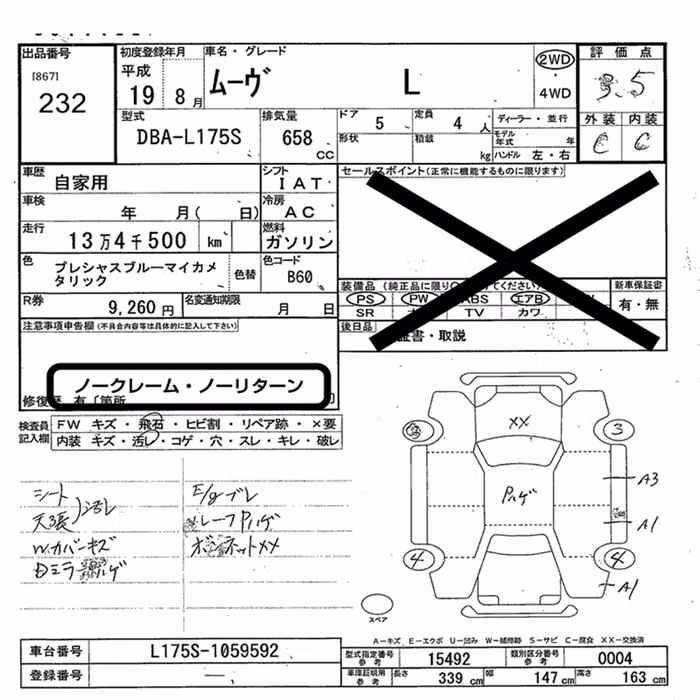 出品番号 初度登録年月 車名・グレード 評価点
[867] 平成 ムーヴ L 2WD
232 19 8月 ・4WD 3.5
型式 排気量 ドア 5 定員 4人 ディーラー・並行 外装 内装
DBA-L175S 658 CC 形状 積載 kg モデル年式 年 C C
ハンドル 左・右
車歴 自家用 シフト IAT セールスポイント(正常に機能するものに限ります)
車検 年 月( 日) 冷房 AC
走行 13万4千500 km 燃料 ガソリン
色 プレシャスブルーマイカメタリック 色替 色コード B60 装備品 (純正品に限り てください) 新車保証書
PS PW ABS エアB 有・無
R券 9,260円 名変通知期限 月 日 SR TV カワ
注意事項申告欄(不具合内容等は具体的に記入して下さい) 後日品 証書・取説
ノークレーム・ノーリターン
修復歴 有(箇所
検査員記入欄 FW キズ・飛石・ヒビ割・リペア跡・×要
内装 キズ・汚レ・コゲ・穴・スレ・キレ・破レ
シート E/gブレ
天張 汚レ ルーフPハゲ
W.カバーキズ ボンネットXX
Dミラー ハゲ
XX
3
Pハゲ
A3
A1
4 4
A1
スペア
A-キズ E-エクボ U-凹み W-補修跡 S-サビ C-腐食 XX-交換済
車台番号 L175S-1059592 型式指定番号 参考 15492 類別区分番号 参考 0004
登録番号 — 車庫証明用 参考 長さ 339 cm 幅 147 cm 高さ 163 cm